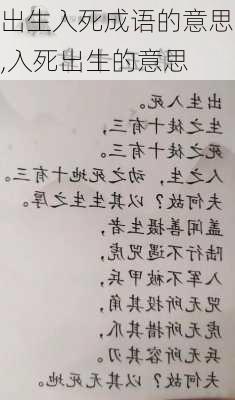 出生入死成语的意思
,入死出生的意思
出生入死。
生之徒十有三，
死之徒十有三。
人之生，动之死地十有三。
夫何故？以其生生之厚。
盖闻善摄生者，
陆行不遇兕虎，
入军不被甲兵，
兕无所投其角，
虎无所措其爪，
兵无所容其刃。
夫何故？以其无死地。